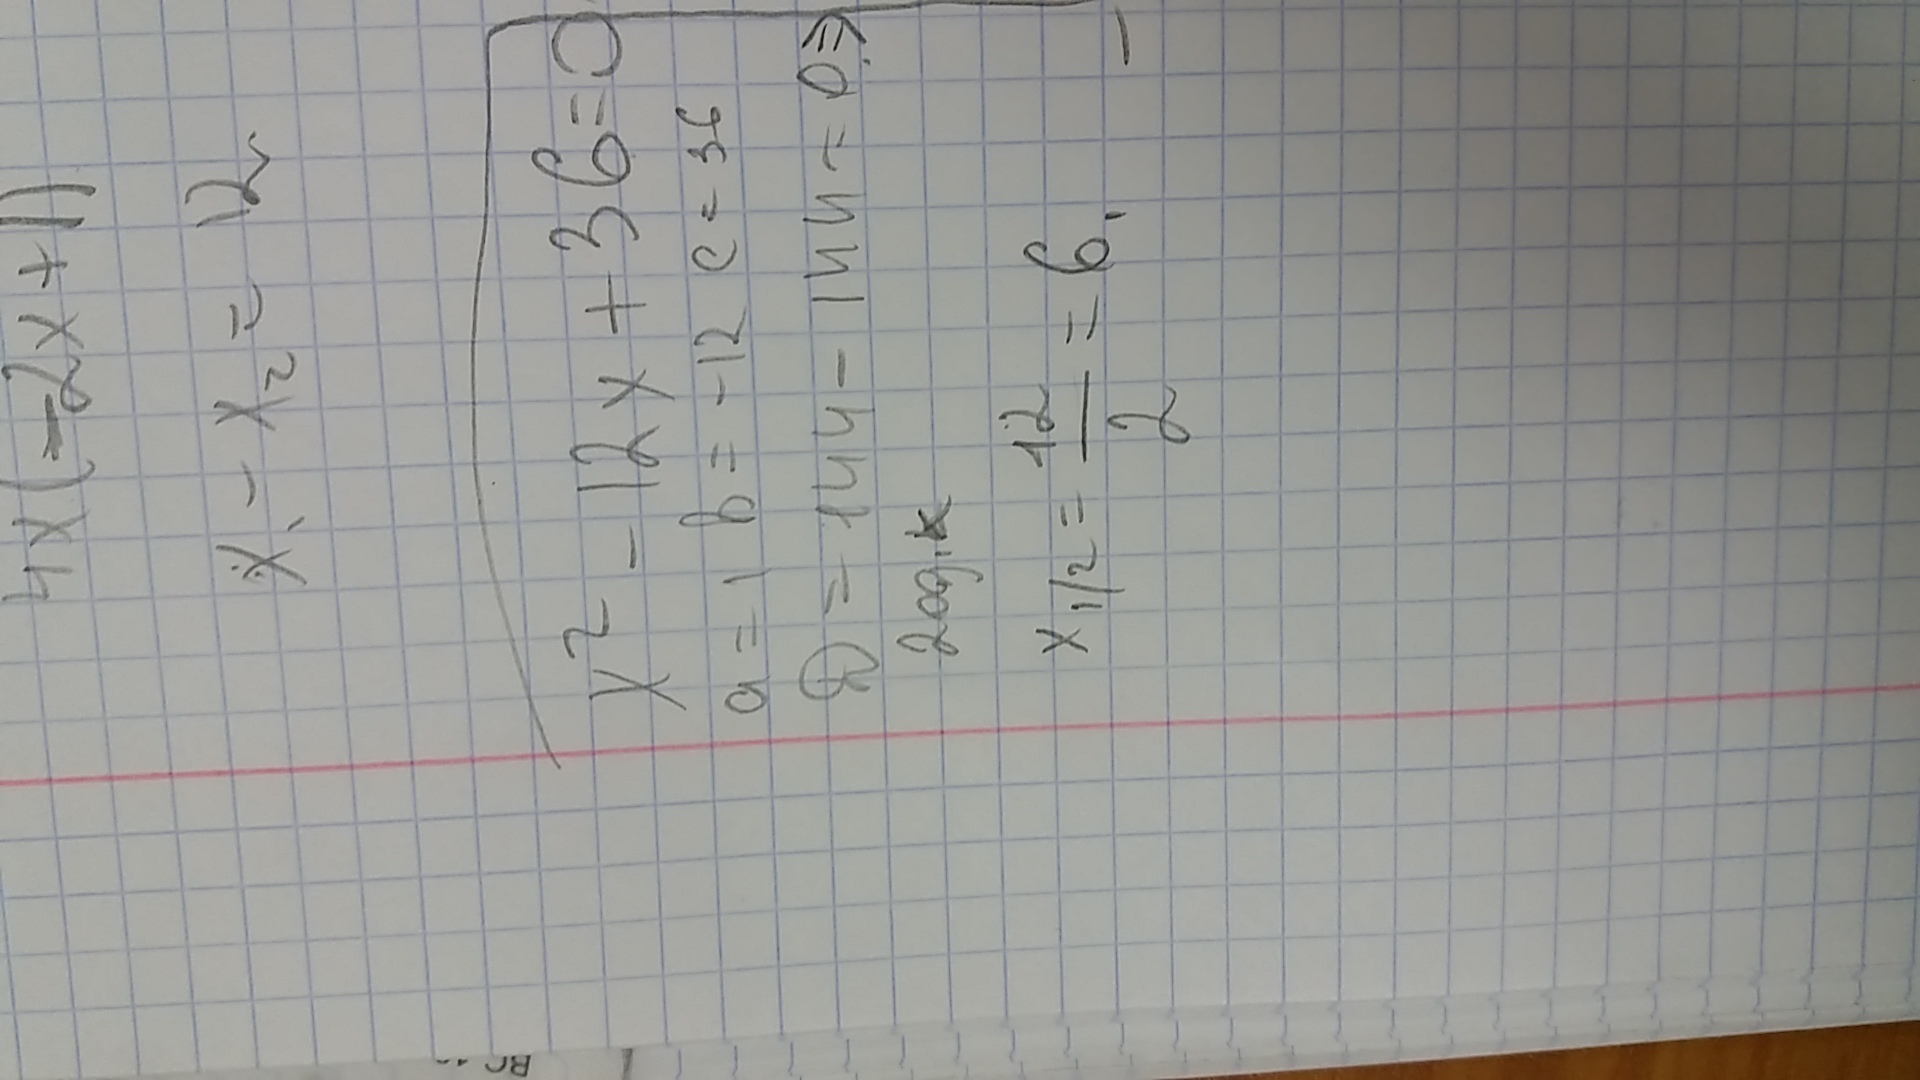 4x(-2x+1)
x₁ - x₂ = 12
x² - 12x + 36 = 0
a = 1 b = -12 c = 36
D = 144 - 144 = 0 ⇒
x₁/₂ = 12/2 = 6.